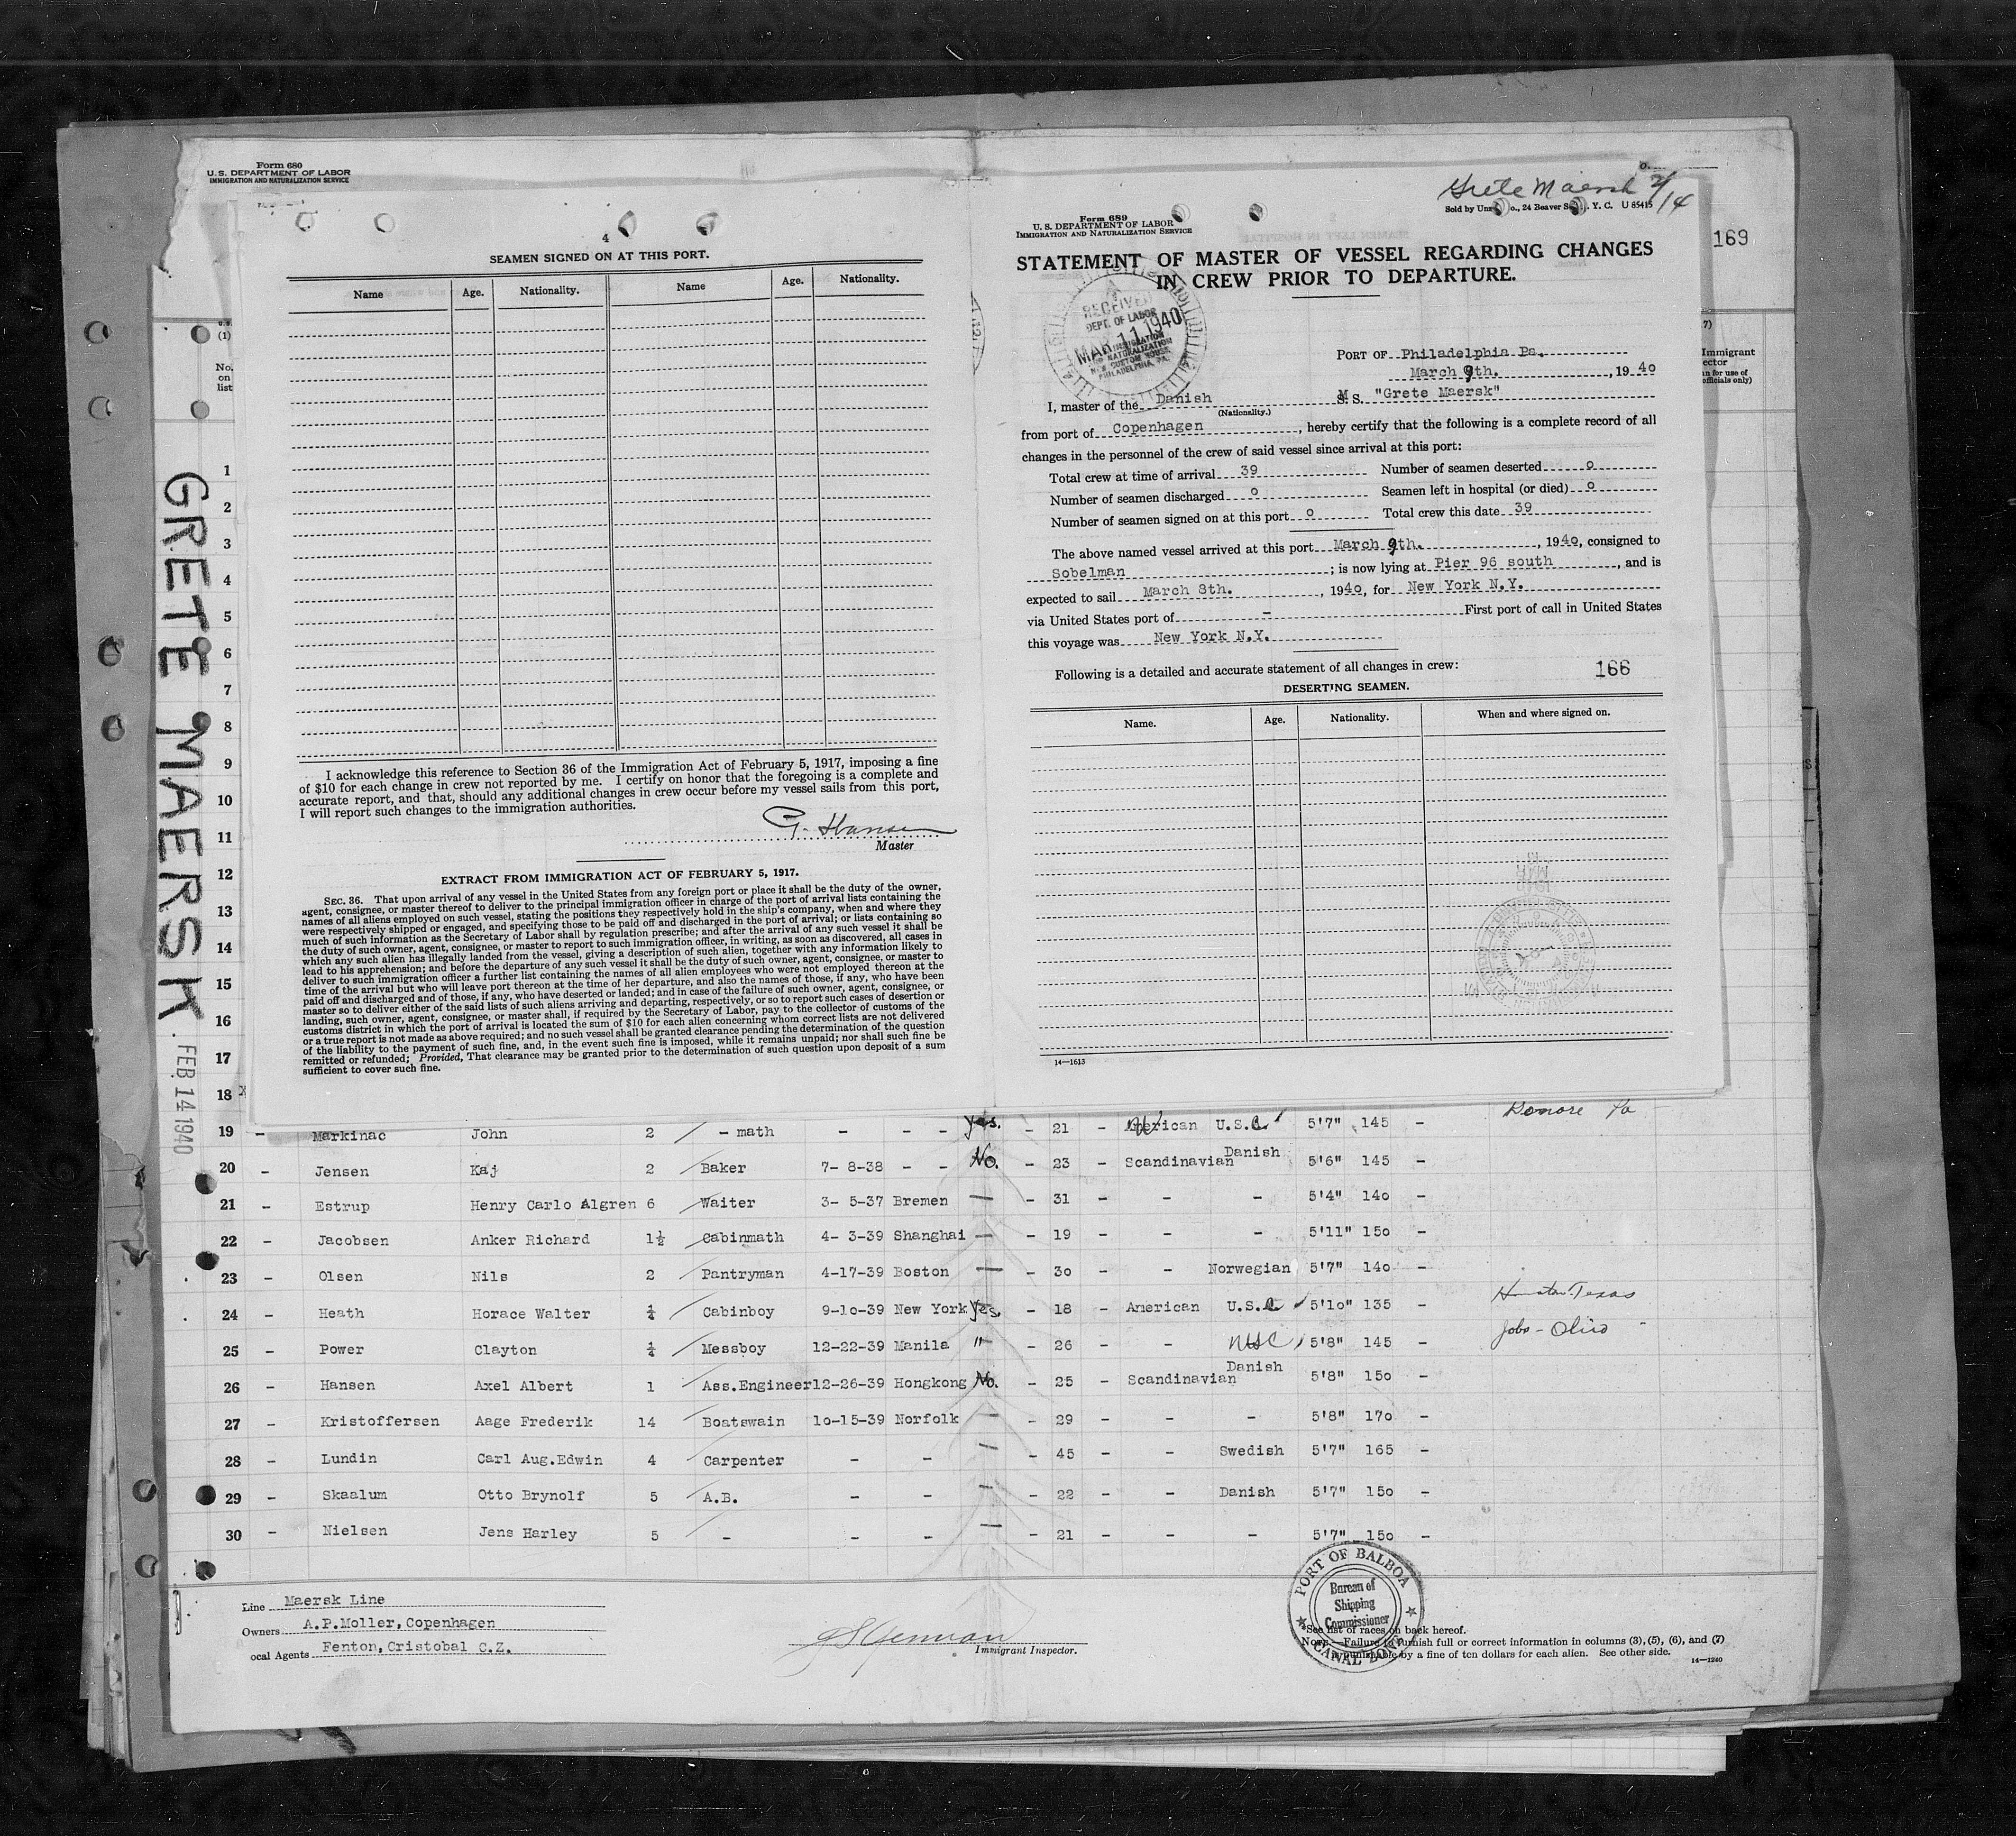 Form 680
U.S. DEPARTMENT OF LABOR
IMMIGRATION AND NATURALIZATION SERVICE
4
SEAMEN SIGNED ON AT THIS PORT.
Name Age. Nationality. Name Age. Nationality.
I acknowledge this reference to Section 36 of the Immigration Act of February 5, 1917, imposing a fine
of $10 for each change in crew not reported by me. I certify on honor that the foregoing is a complete and
accurate report, and that, should any additional changes in crew occur before my vessel sails from this port,
I will report such changes to the immigration authorities.
G. Hansen
Master
EXTRACT FROM IMMIGRATION ACT OF FEBRUARY 5, 1917.
SEC. 36. That upon arrival of any vessel in the United States from any foreign port or place it shall be the duty of the owner,
agent, consignee, or master thereof to deliver to the principal immigration officer in charge of the port of arrival lists containing the
names of all aliens employed on such vessel, stating the positions they respectively hold in the ship's company, when and where they
were respectively shipped or engaged, and specifying those to be paid off and discharged in the port of arrival; or lists containing so
much of such information as the Secretary of Labor shall by regulation prescribe; and after the arrival of any such vessel it shall be
the duty of such owner, agent, consignee, or master to report to such immigration officer, in writing, as soon as discovered, all cases in
which any such alien has illegally landed from the vessel, giving a description of such alien, together with any information likely to
lead to his apprehension; and before the departure of any such vessel it shall be the duty of such owner, agent, consignee, or master to
deliver to such immigration officer a further list containing the names of all alien employees who were not employed thereon at the
time of the arrival but who will leave port thereon at the time of her departure, and also the names of those, if any, who have been
paid off and discharged and of those, if any, who have deserted or landed; and in case of the failure of such owner, agent, consignee, or
master so to deliver either of the said lists of such aliens arriving and departing, respectively, or so to report such cases of desertion or
landing, such owner, agent, consignee, or master shall, if required by the Secretary of Labor, pay to the collector of customs of the
customs district in which the port of arrival is located the sum of $10 for each alien concerning whom correct lists are not delivered
or a true report is not made as above required; and no such vessel shall be granted clearance pending the determination of the question
of the liability to the payment of such fine, and, in the event such fine is imposed, while it remains unpaid; nor shall such fine be
remitted or refunded; Provided, That clearance may be granted prior to the determination of such question upon deposit of a sum
sufficient to cover such fine.
Grete Maersk 2/14
Sold by Unz o., 24 Beaver S . Y. C. U 85415
Form 689
U. S. DEPARTMENT OF LABOR
IMMIGRATION AND NATURALIZATION SERVICE
STATEMENT OF MASTER OF VESSEL REGARDING CHANGES
IN CREW PRIOR TO DEPARTURE.
RECEIVED
DEPT. OF LABOR
MAR 11 1940
IMMIGRATION
NATURALIZATION
NEW CUSTOM HOUSE
PHILADELPHIA, PA.
PORT OF Philadelphia Pa.
March 9th. , 1940
I, master of the Danish M S.S. "Grete Maersk"
(Nationality.)
from port of Copenhagen , hereby certify that the following is a complete record of all
changes in the personnel of the crew of said vessel since arrival at this port:
Total crew at time of arrival 39 Number of seamen deserted 0
Number of seamen discharged 0 Seamen left in hospital (or died) 0
Number of seamen signed on at this port 0 Total crew this date 39
The above named vessel arrived at this port March 9th. , 1940, consigned to
Sobelman ; is now lying at Pier 96 south , and is
expected to sail March 8th. , 1940, for New York N.Y.
via United States port of - First port of call in United States
this voyage was New York N.Y.
Following is a detailed and accurate statement of all changes in crew:
166
DESERTING SEAMEN.
Name. Age. Nationality. When and where signed on.
14—1613
169
(1)
No.
on
list
7)
Immigrant
ector
n for use of
officials only)
GRETE MAERSK FEB 14 1940
1
2
3
4
5
6
7
8
9
10
11
12
13
14
15
16
17
18
Donore Pa
19 - Markinac John 2 - math - - - Yes. - 21 - American U.S.C. 5'7" 145 -
20 - Jensen Kaj 2 Baker 7- 8-38 - - No. - 23 - Scandinavian Danish 5'6" 145 -
21 - Estrup Henry Carlo Algren 6 Waiter 3- 5-37 Bremen — - 31 - - - 5'4" 140 -
22 - Jacobsen Anker Richard 1½ Cabinmath 4- 3-39 Shanghai — - 19 - - - 5'11" 150 -
23 - Olsen Nils 2 Pantryman 4-17-39 Boston — - 30 - - Norwegian 5'7" 140 -
24 - Heath Horace Walter ¼ Cabinboy 9-10-39 New York Yes - 18 - American U.S.C 5'10" 135 - Houston Texas
25 - Power Clayton ¼ Messboy 12-22-39 Manila " - 26 - - USC 5'8" 145 - Ohio -
26 - Hansen Axel Albert 1 Ass.Engineer 12-26-39 Hongkong No. - 25 - Scandinavian Danish 5'8" 150 -
27 - Kristoffersen Aage Frederik 14 Boatswain 10-15-39 Norfolk — - 29 - - - 5'8" 170 -
28 - Lundin Carl Aug.Edwin 4 Carpenter - - — - 45 - - Swedish 5'7" 165 -
29 - Skaalum Otto Brynolf 5 A.B. - - — - 22 - - Danish 5'7" 150 -
30 - Nielsen Jens Harley 5 - - - — - 21 - - - 5'7" 150 -
Line Maersk Line
Owners A.P.Moller, Copenhagen
ocal Agents Fenton, Cristobal C.Z.
Immigrant Inspector.
PORT OF BALBOA
Bureau of
Shipping
Commissioner
CANAL ZONE
See list of races on back hereof.
NOTE.—Failure to furnish full or correct information in columns (3), (5), (6), and (7)
is punishable by a fine of ten dollars for each alien. See other side.
14—1240